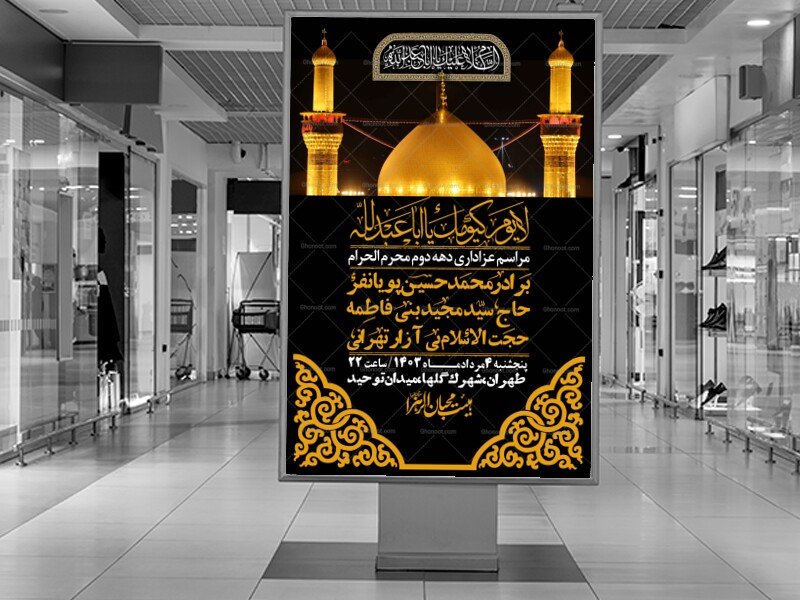 السلام علیک یا اباعبدالله
لا یوم کیومک یا اباعبدالله
مراسم عزاداری دهه دوم محرم الحرام
برادر محمدحسین پویانفر
حاج سیدمجید بنی فاطمه
حجت الاسلام بی آزار تهرانی
پنجشنبه ۴ مردادماه ۱۴۰۳ / ساعت ۲۲
طهران، شهرک گلها، میدان توحید
هیئت محبان الزهرا
Ghonoot.com